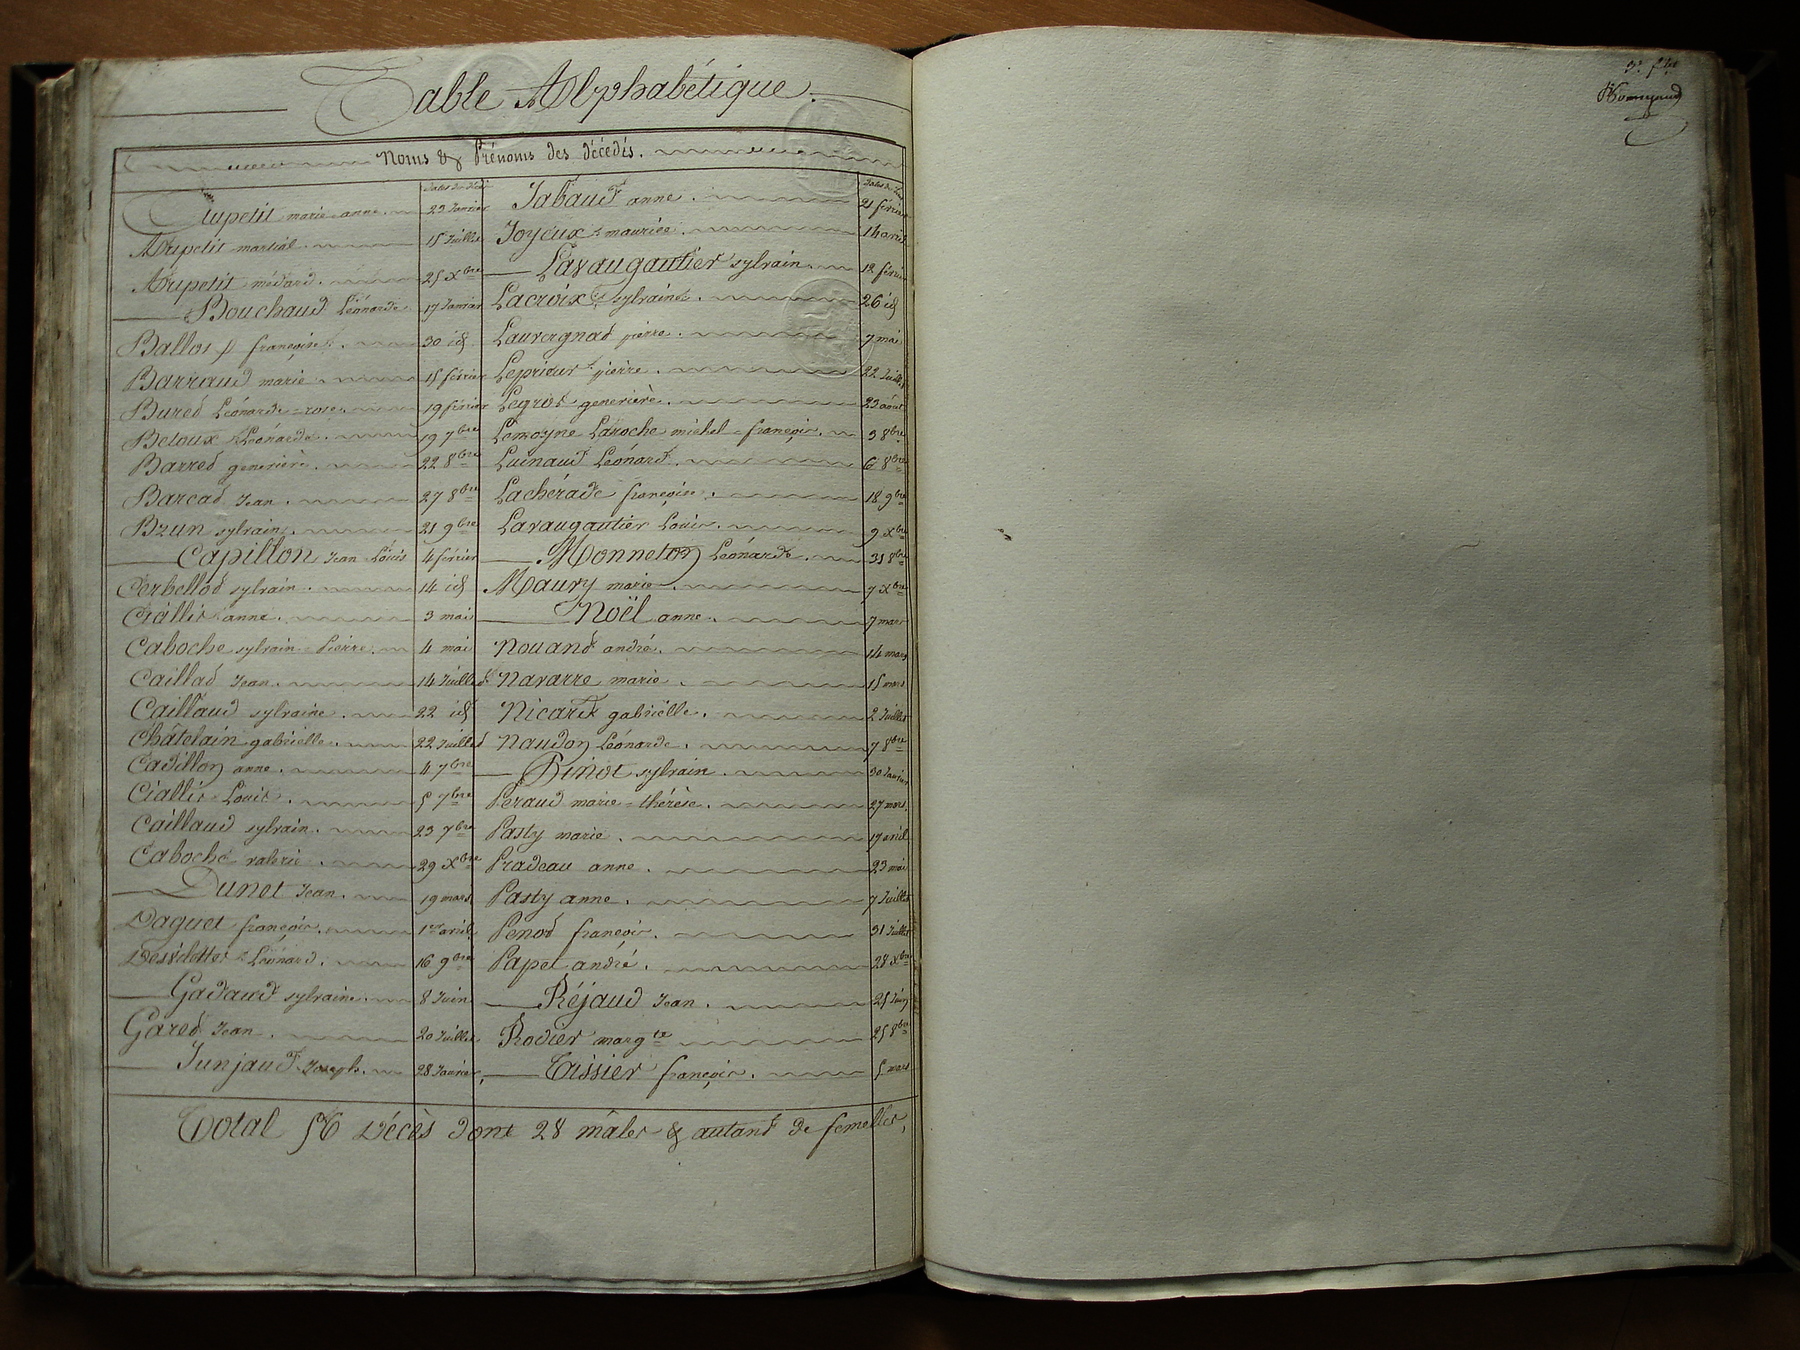 Table Alphabétique.
Noms & Prénoms des décédés.
Dates des décès
Aupetit marie anne. 23 Janvier
Aupetit martial. 15 Juillet
Aupetit médard. 25 Xbre
Bouchaud Léonarde. 17 Janvier
Ballot françoise. 30 id
Barraud marie. 15 février
Bured Léonarde=rose. 19 février
Betoux Léonarde. 19 7bre
Barred genevieve. 22 8bre
Barcad Jean. 27 8bre
Bzun sylvain. 21 9bre
Capillon Jean Loüis 4 février
Cerbellod sylvain. 14 id
Ciallis anne. 3 mai
Caboche sylvain=Pierre. 4 mai
Caillad Jean. 14 Juillet
Caillaud sylvaine. 22 id
Châtelain gabrielle. 22 Juillet
Cadillon anne. 4 7bre
Ciallis Louis. 5 7bre
Caillaud sylvain. 23 7bre
Caboche valerie. 29 Xbre
Dunet Jean. 19 mars
Daguet françois. 1er avril
Desvilettes Léonard. 16 9bre
Gadaud sylvaine. 8 Juin
Gared Jean. 20 Juillet
Junjaud Joseph. 28 Janvier
Dates des
Jabaud anne. 21 février
Joyeux mauricé. 14 avril
Lavaugautier sylvain. 12 février
Lacroix sylvaine. 26 id
Lauvergnad pierre. 7 mai
Leprieur pierre. 22 Juillet
Legros genevieve. 23 août
Lemoyne Laroche michel=françois. 3 8bre
Luinaud Léonard. 6 8bre
Lachérade françoise. 18 9bre
Lavaugautier Louis. 9 Xbre
Monneton Léonarde. 31 8bre
Maury marie. 7 Xbre
Noël anne. 7 mars
Nouand andré. 14 mars
Navarre marie. 15 mars
Nicard gabriëlle. 2 Juillet
Naudon Léonarde. 7 8bre
Pinot sylvain. 30 Janvier
Peraud marie=thérèse. 27 mars
Pasty marie. 17 avril
Pradeau anne. 23 mai
Pasty anne. 7 Juillet
Penod françois. 31 Juillet
Papet andré. 28 Xbre
Réjaud Jean. 25 Juin
Rodier margte 25 8bre
Tissier françois. 5 mars
Total 56 décès dont 28 mâles & autant de femelles,